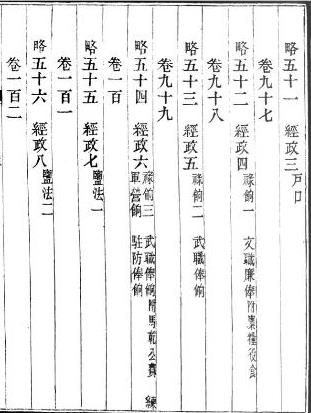 略五十一 經政三 戶口
卷九十七
略五十二 經政四 祿餉一 文職廉俸附糧役食
卷九十八
略五十三 經政五 祿餉二 武職俸餉
卷九十九
略五十四 經政六 祿餉三 武職俸餉附馬乾公費 練
軍營餉 駐防俸餉
卷一百
略五十五 經政七 鹽法一
卷一百一
略五十六 經政八 鹽法二
卷一百二